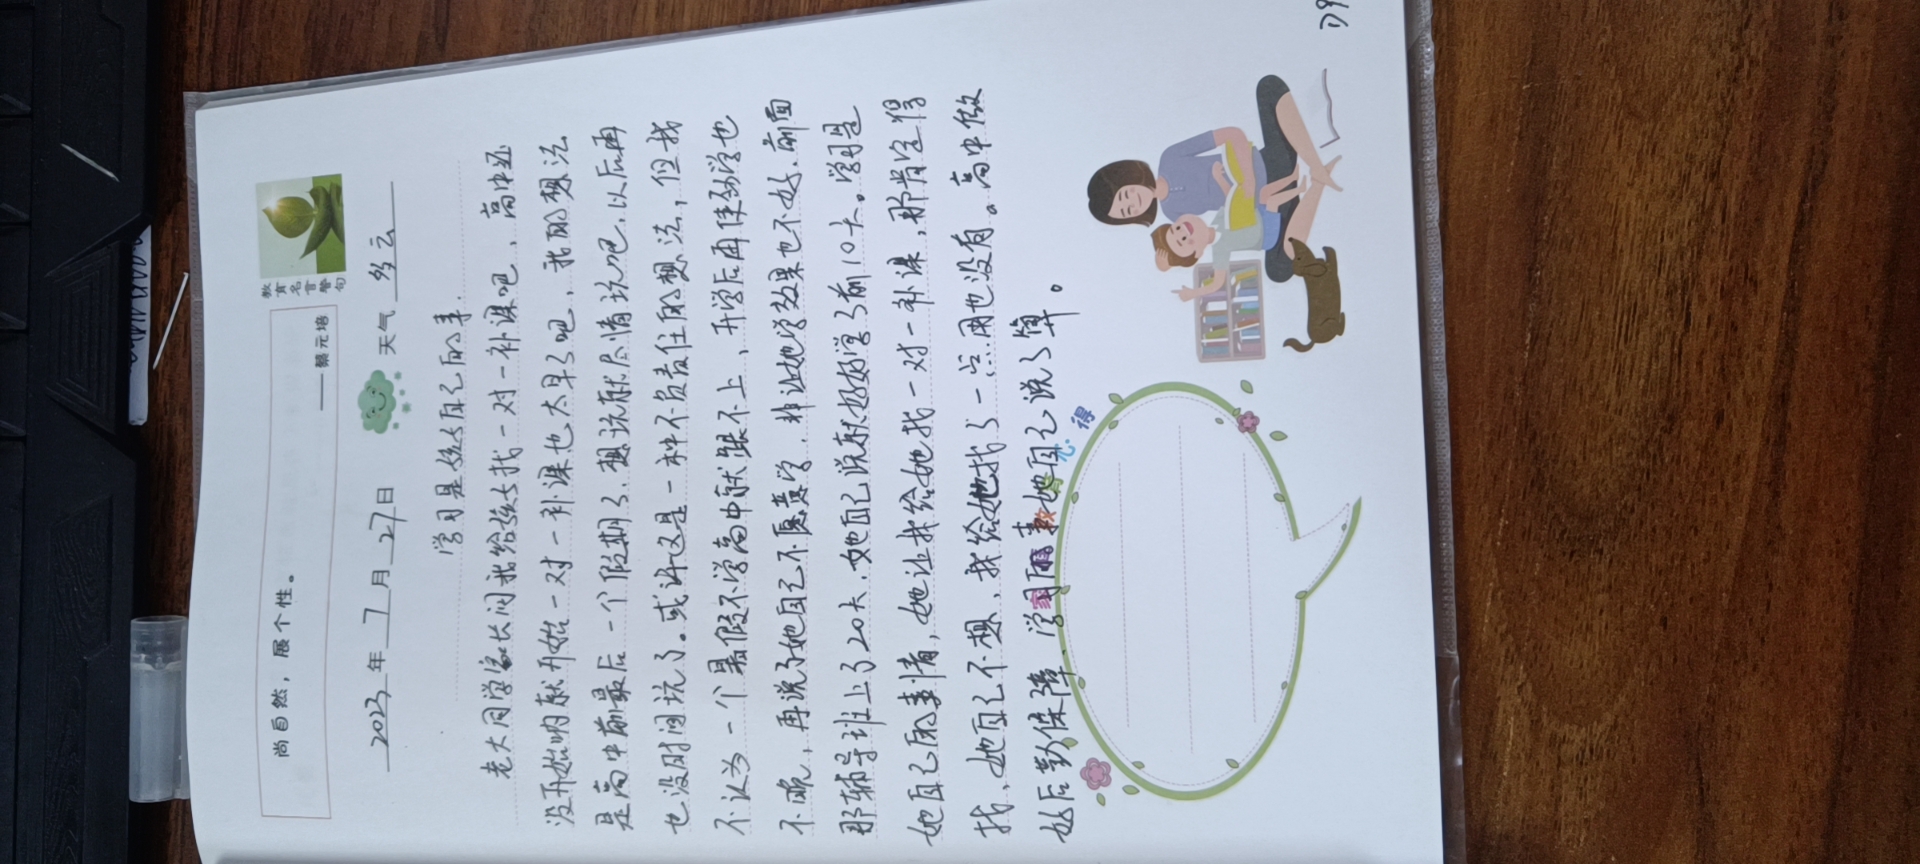 教育名言警句
尚自然，展个性。
——蔡元培
2023年7月27日 天气 多云
学习是孩子自己的事.
老大同学家长问我给孩子找一对一补课吧、高中还
没开始呐就开始一对一补课也太早了吧，我的想法
是高中前最后一个假期了.想玩就尽情玩吧.以后再
也没时间玩了。或许这是一种不负责任的想法，但我
不认为一个暑假不学高中就跟不上、开学后再使劲学也
不晚，再说了她自己不愿意学.非让她学效果也不好.前面
那辅导班上了20大.她自己说就好好学了前10大。学习是
她自己的事情，她让我给她找一对一补课，那肯定得
找、她自己不想、我给她找了一点用也没有。高中做
好后勤保障、学习的事她自己说了算。
家教心得